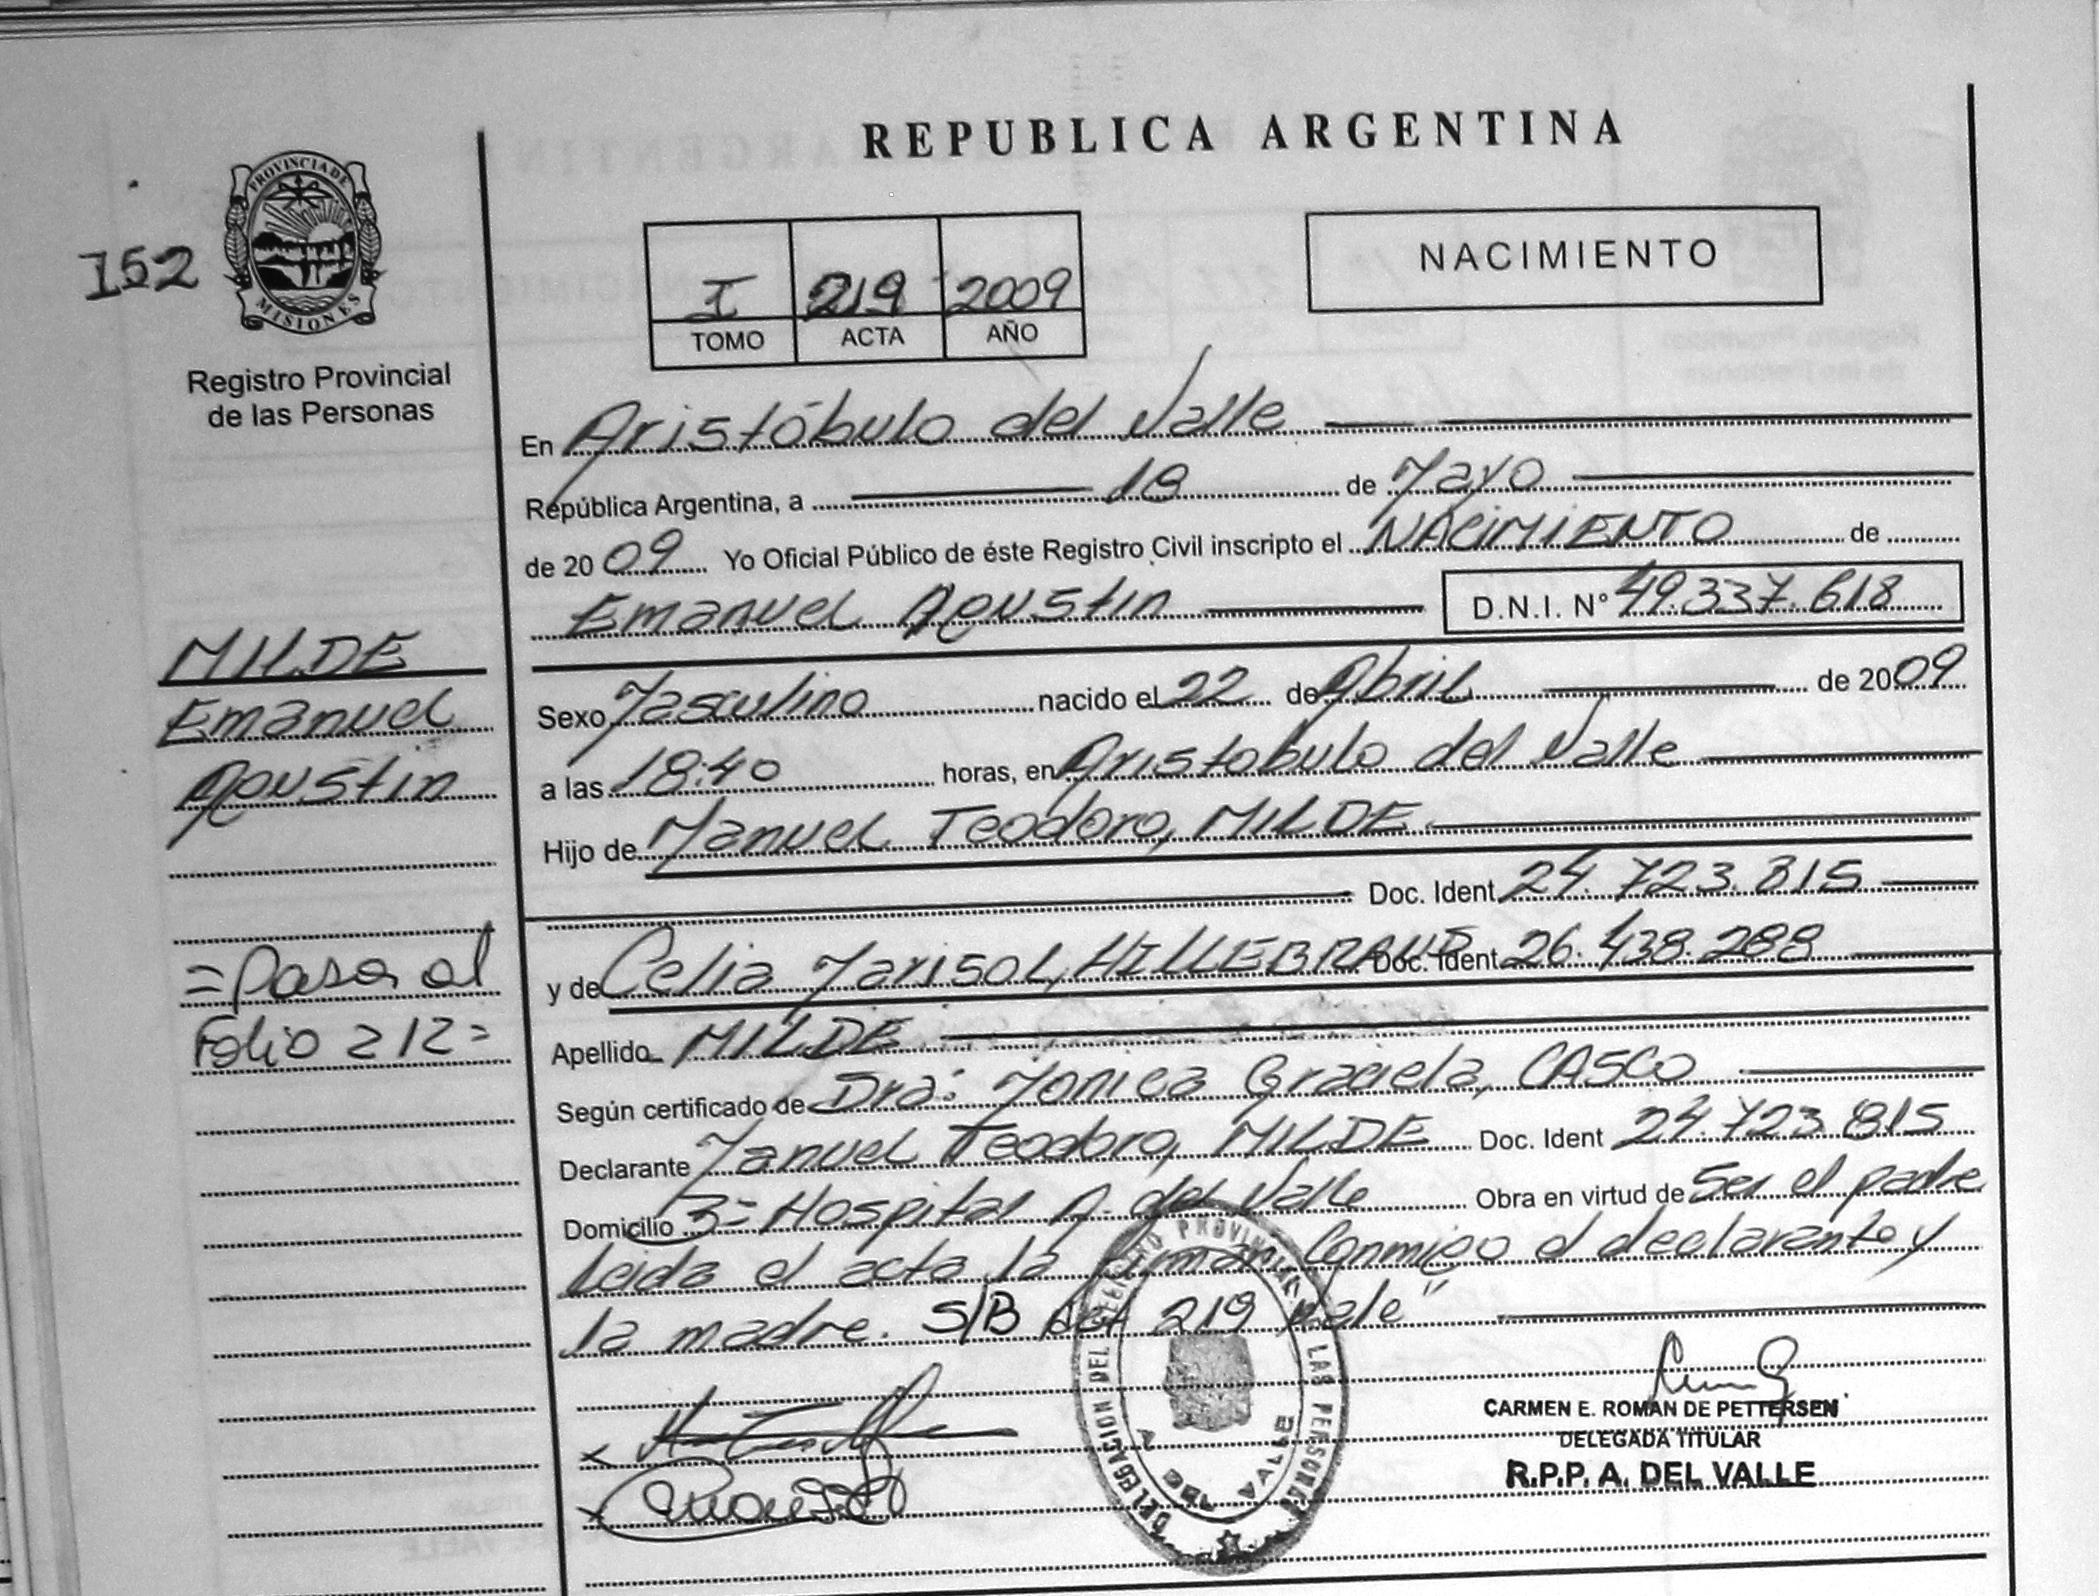 REPUBLICA ARGENTINA
152
PROVINCIA DE
MISIONES
Registro Provincial
de las Personas
I 219 2009
TOMO ACTA AÑO
NACIMIENTO
En Aristóbulo del Valle
República Argentina, a 18 de Mayo
de 2009 Yo Oficial Público de éste Registro Civil inscripto el NACIMIENTO de
Emanuel Agustin D.N.I. Nº 49.337.618
MILDE
Emanuel
Agustin
Sexo Masculino nacido el 22 de Abril de 2009
a las 18:40 horas, en Aristobulo del Valle
Hijo de Manuel Teodoro, MILDE
Doc. Ident 24.723.815
y de Celia Marisol, HILLEBRAND Doc. Ident 26.438.288
=Pasa al
Folio 212=
Apellido MILDE
Según certificado de Dra: Monica Graciela, CASCO
Declarante Manuel Teodoro, MILDE Doc. Ident 24.723.815
Domicilio 3= Hospital A. del Valle Obra en virtud de Ser el padre
Leida el acta la firman Conmigo el declarante y
la madre. S/B 219 Vale"
DELEGACION DEL REGISTRO PROVINCIAL LAS PERSONAS
A DEL VALLE
CARMEN E. ROMAN DE PETTERSEN
DELEGADA TITULAR
R.P.P. A. DEL VALLE